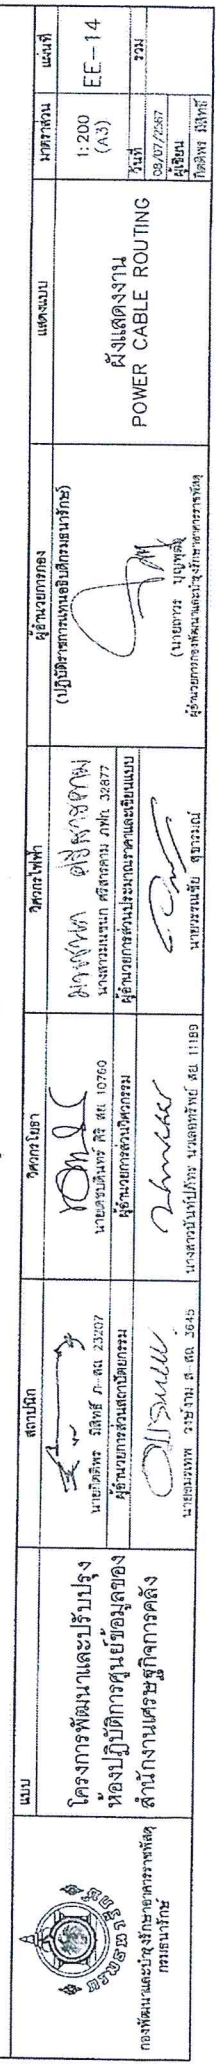 กรมธนารักษ์
กองพัฒนาและบำรุงรักษาอาคารราชพัสดุ
กรมธนารักษ์
แบบ
โครงการพัฒนาและปรับปรุง
ห้องปฏิบัติการศูนย์ข้อมูลของ
สำนักงานเศรษฐกิจการคลัง
สถาปนิก
นายกิตติพร มีสิทธิ์ ภ-สถ. 23207
ผู้อำนวยการส่วนสถาปัตยกรรม
วงษ์งาม ส-สถ. 3645
วิศวกรโยธา
นายเดชบดินทร์ ศิริ สย. 10760
ผู้อำนวยการส่วนวิศวกรรม
นวลอทรัพย์ สย. 11189
วิศวกรไฟฟ้า
นางสาวมนชนก ศรีสารคาม ภฟก. 32877
ผู้อำนวยการส่วนประมาณราคาและเขียนแบบ
นายวรรณชัย สุขารมณ์
ผู้อำนวยการกอง
(ปฏิบัติราชการแทนอธิบดีกรมธนารักษ์)
(นายถาวร บุญพุฒ)
ผู้อำนวยการกองพัฒนาและบำรุงรักษาอาคารราชพัสดุ
แสดงแบบ
ผังแสดงงาน
POWER CABLE ROUTING
มาตราส่วน
1:200
(A3)
วันที่
08/07/2567
ผู้เขียน
กิตติพร มีสิทธิ์
แผ่นที่
EE-14
รวม